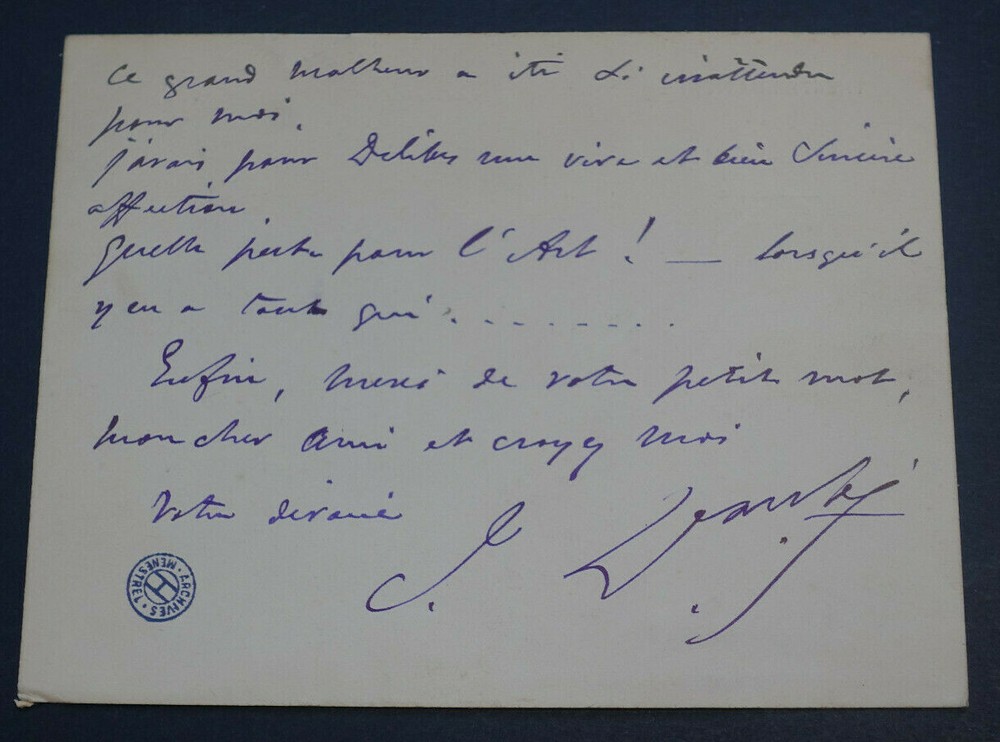 Ce grand malheur a été si inattendu
pour moi.
j'avais pour Delibes une vive et bien sincère
affection.
Quelle perte pour l'Art ! — lorsqu'il
y en a tant qui . . . . . . . .
Enfin, merci de votre petit mot,
mon cher ami et croyez moi
Votre dévoué
J.
ARCHIVES · MENESTREL ·
H